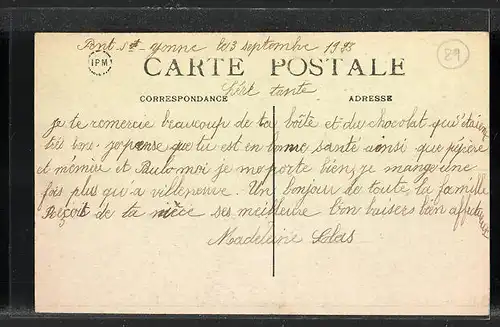 Pont sur yonne le 3 septembre 19
89
IPM
CARTE POSTALE
CORRESPONDANCE
ADRESSE
tante
je te remercie beaucoup de ta boîte et du chocolat qui étaient
très bons j'espense que tu est en bonne santé ainsi que
et mémère et Paulo moi je me porte bien, je mange une
fois plus qu'a villeneuve. Un bonjour de toute la famille
Reçoit de ta nièce ses meilleure bon baisers bien
Madeleine